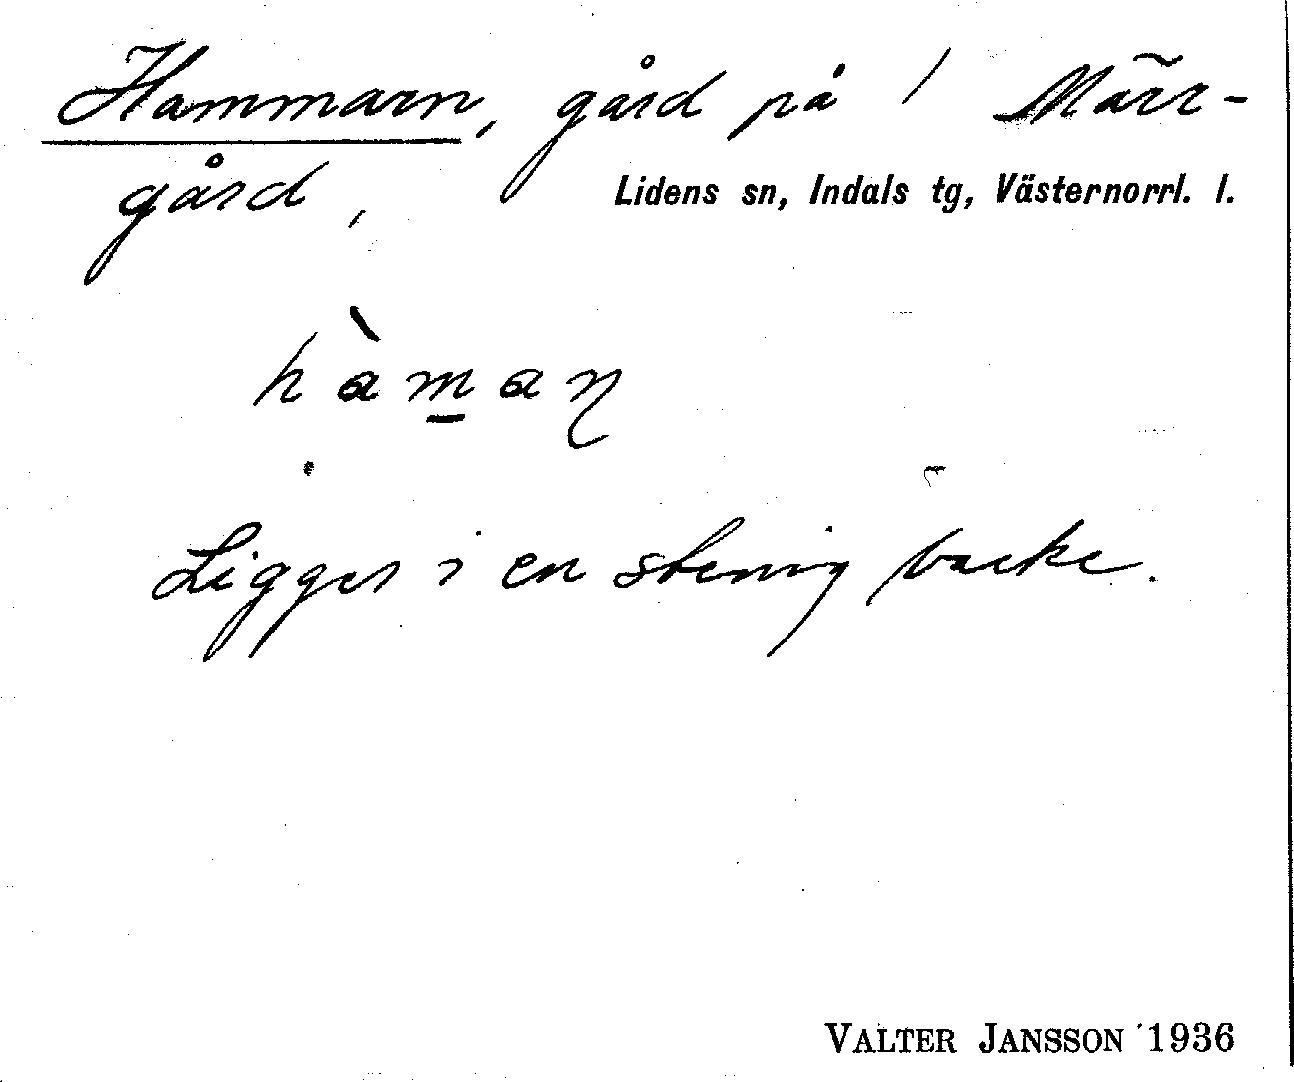 Hammarn, gård på 1 Märr-
gård,
Lidens sn, Indals tg, Västernorrl. l.
hàm̲aɳ
Ligger i en stenig backe.
VALTER JANSSON 1936